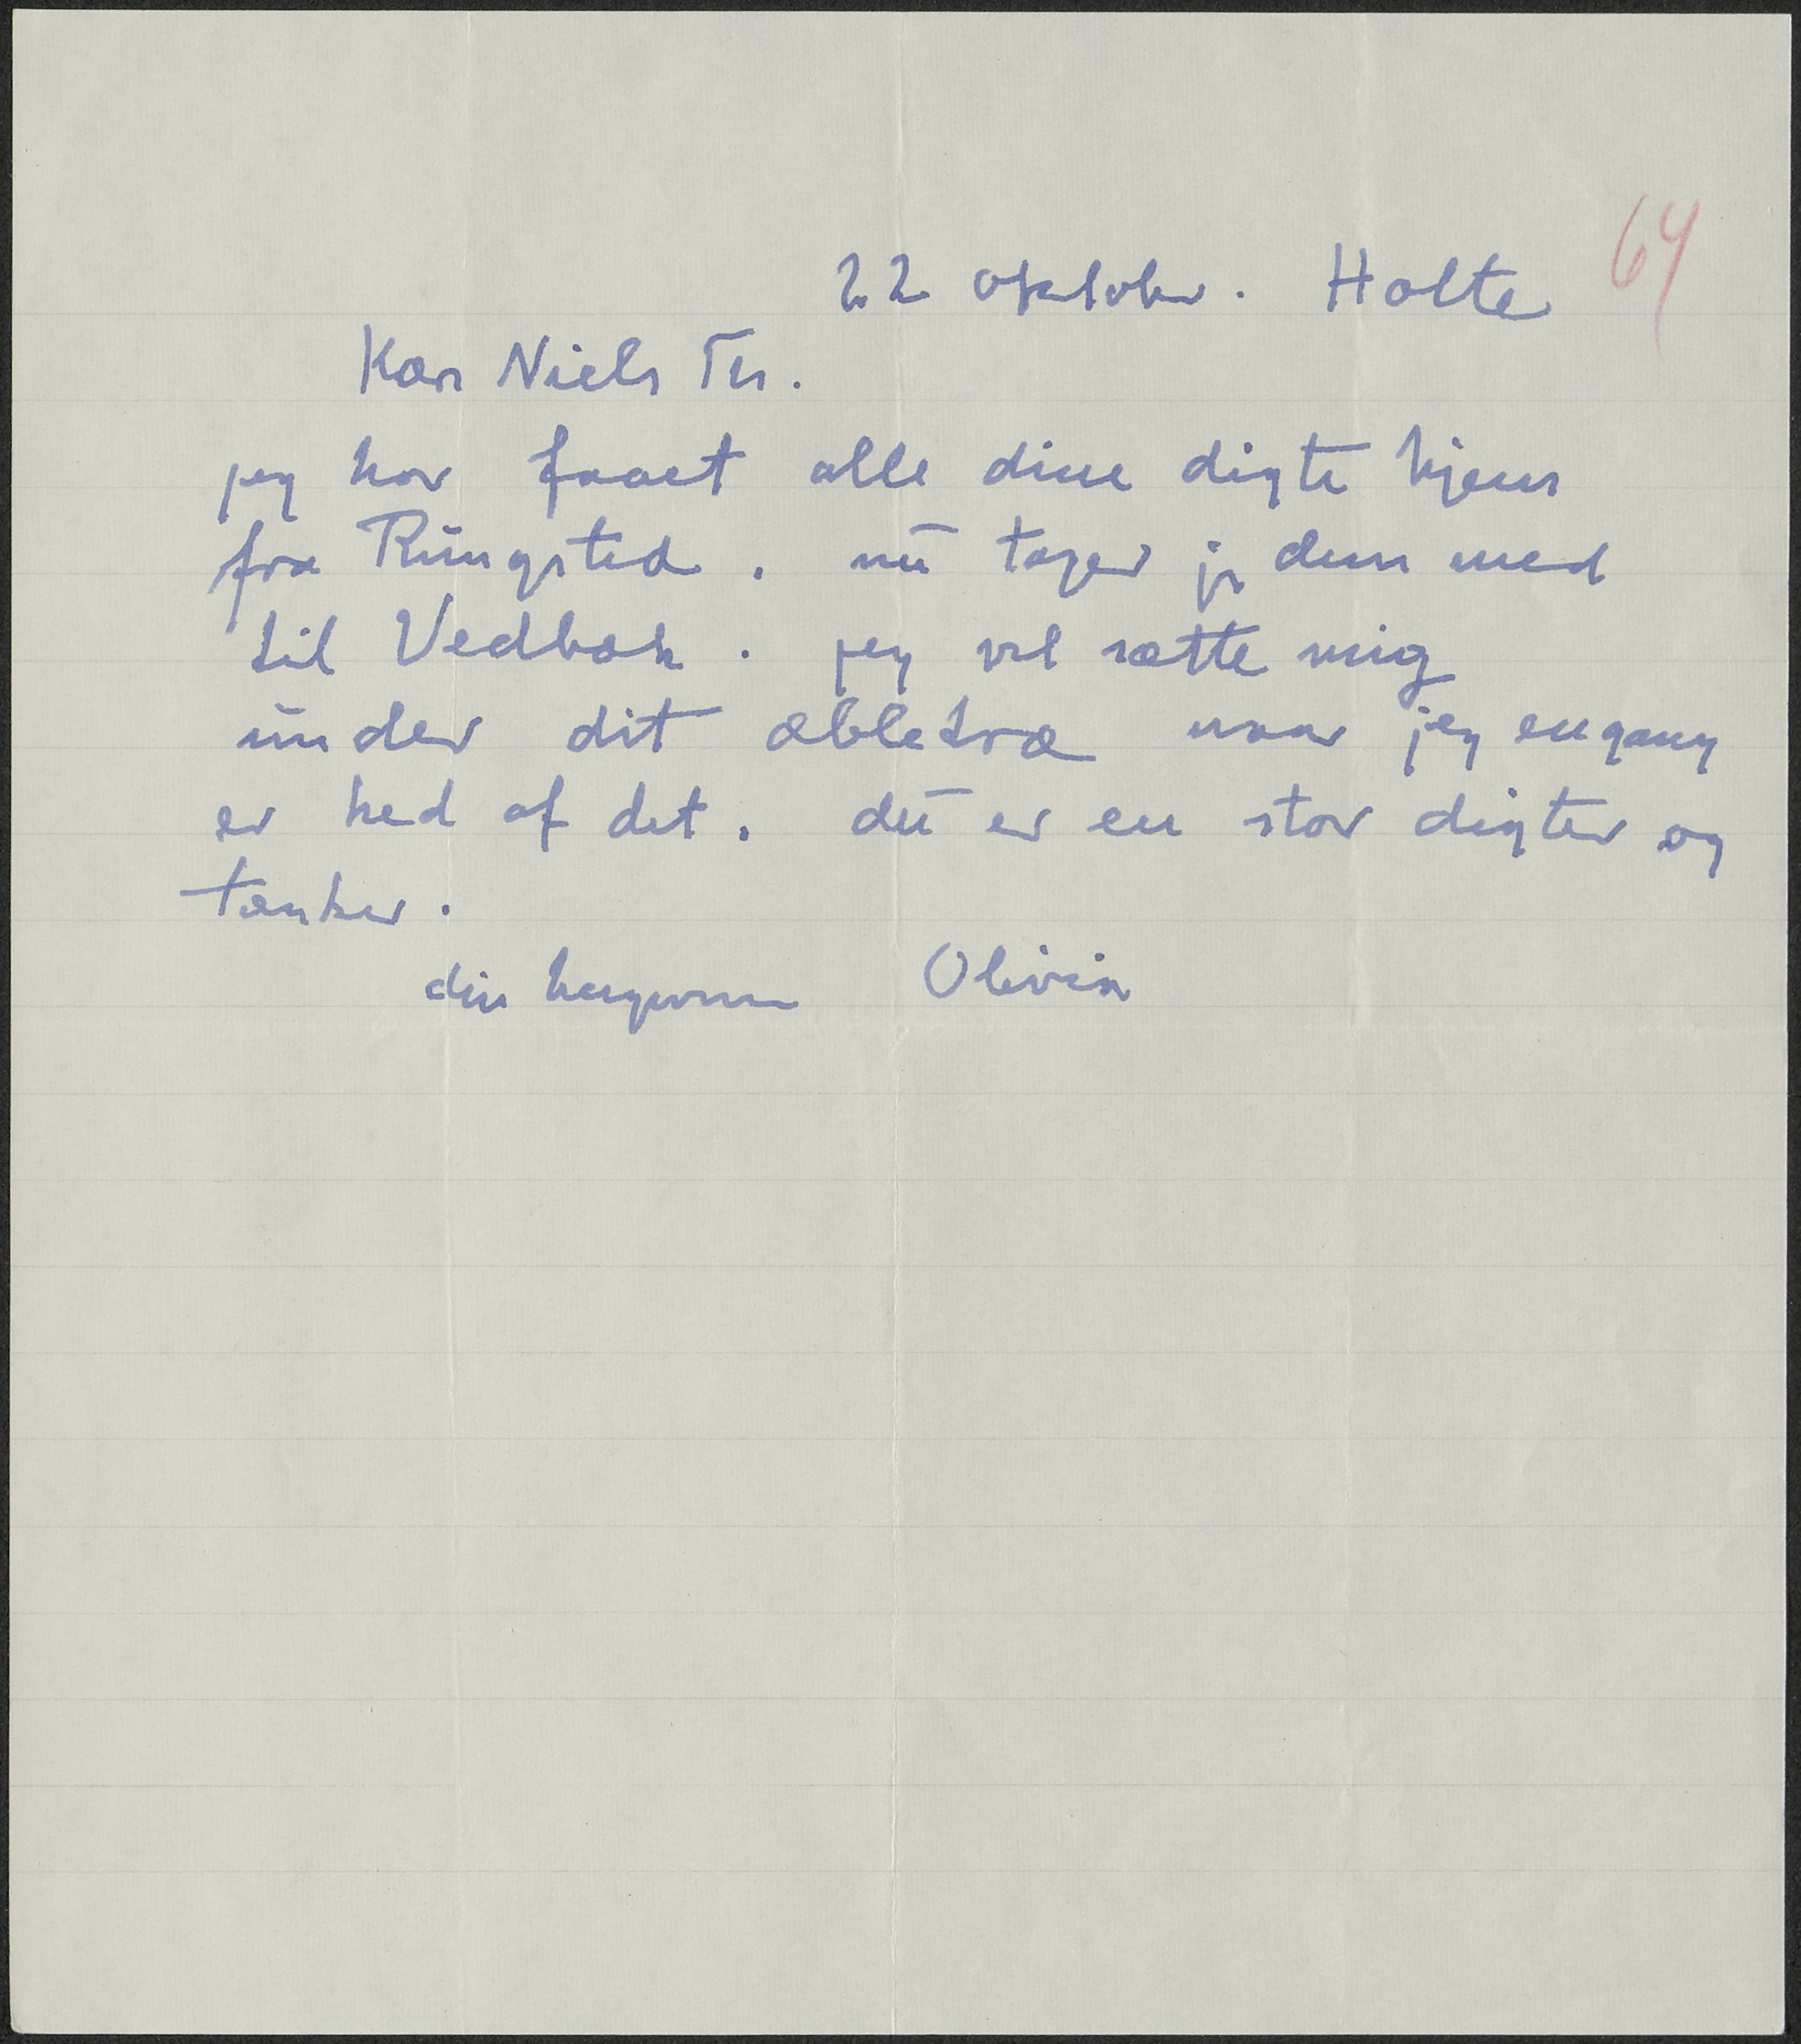 64
22 oktober. Holte
Kær Niels Th.
jeg har faaet alle dine digte hjem
fra Rungsted. nu tager jeg dem med
til Vedbæk. jeg vil sætte mig
under dit æbletræ naar jeg engang
er ked af det. du er en stor digter og
tænker.
din hengivne Olivia